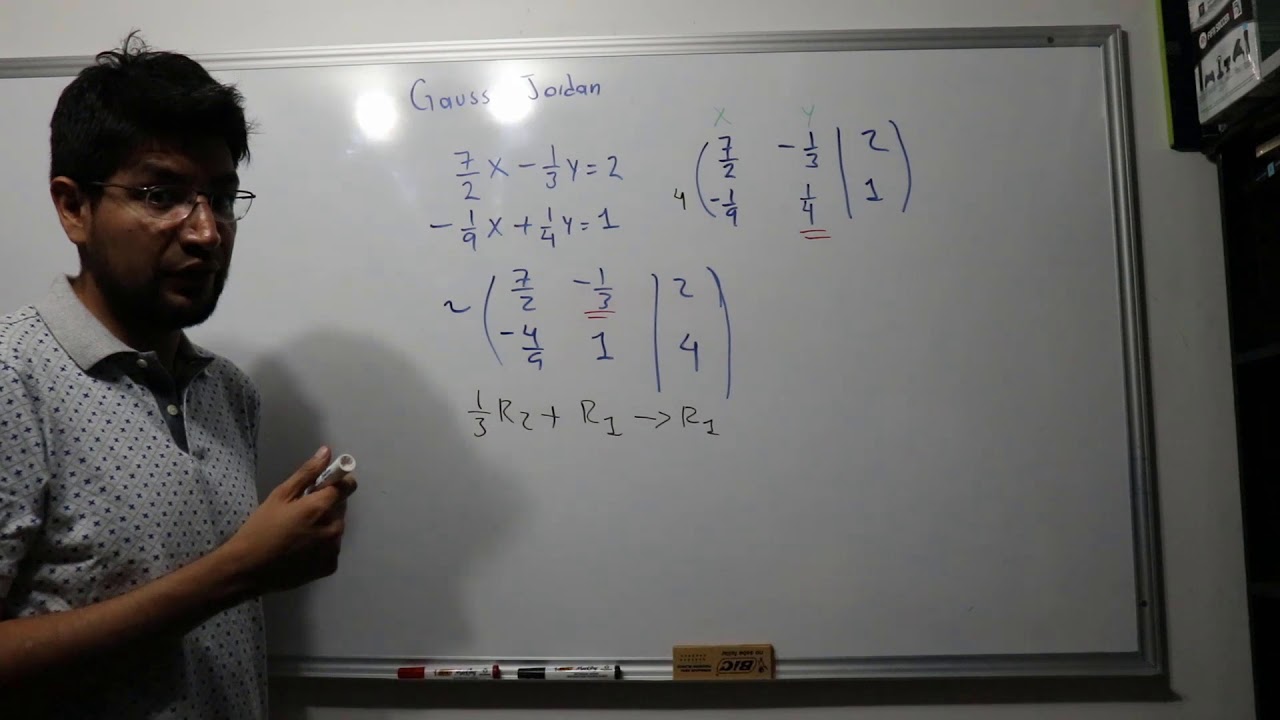 Gauss Jordan
7/2 X - 1/3 Y = 2
-1/9 X + 1/4 Y = 1
X Y
( 7/2 -1/3 | 2 )
4 ( -1/9 1/4 | 1 )
~ ( 7/2 -1/3 | 2 )
( -4/9 1 | 4 )
1/3 R2 + R1 → R1
BIC